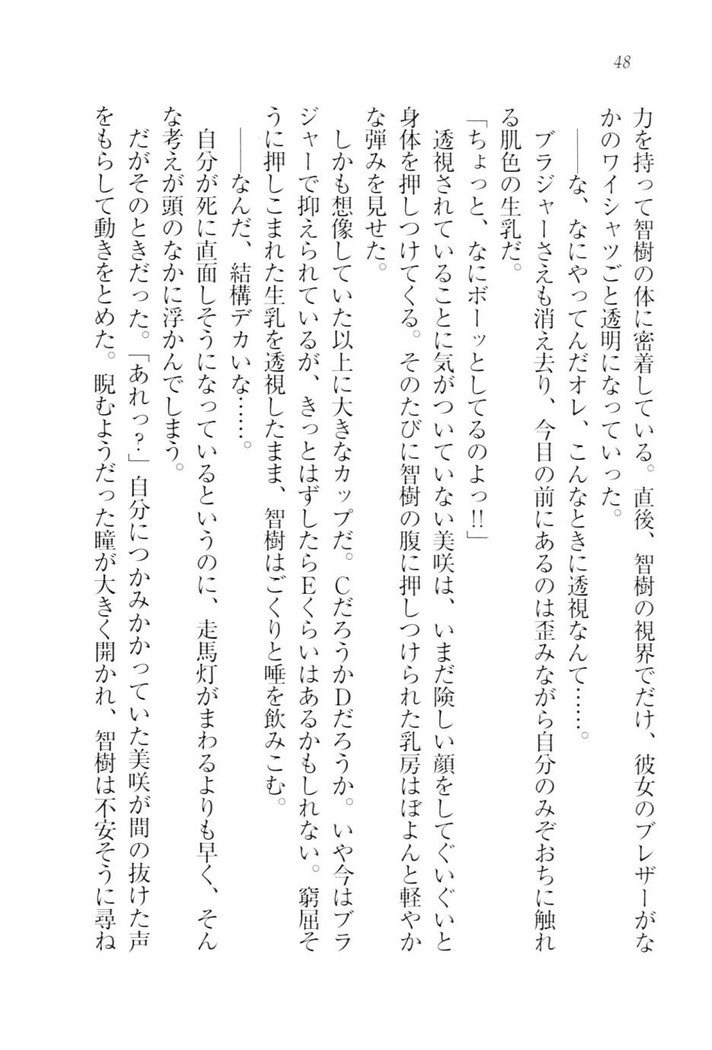 48
力を持って智樹の体に密着している。直後、智樹の視界でだけ、彼女のブレザーがな
かのワイシャツごと透明になっていった。
――な、なにやってんだオレ、こんなときに透視なんて……。
ブラジャーさえも消え去り、今目の前にあるのは歪みながら自分のみぞおちに触れ
る肌色の生乳だ。
「ちょっと、なにボーッとしてるのよっ!!」
透視されていることに気がついていない美咲は、いまだ険しい顔をしてぐいぐいと
身体を押しつけてくる。そのたびに智樹の腹に押しつけられた乳房はぼよんと軽やか
な弾みを見せた。
しかも想像していた以上に大きなカップだ。CだろうかDだろうか。いや今はブラ
ジャーで抑えられているが、きっとはずしたらEくらいはあるかもしれない。窮屈そ
うに押しこまれた生乳を透視したまま、智樹はごくりと唾を飲みこむ。
――なんだ、結構デカいな……。
自分が死に直面しそうになっているというのに、走馬灯がまわるよりも早く、そん
な考えが頭のなかに浮かんでしまう。
だがそのときだった。「あれっ?」自分につかみかかっていた美咲が間の抜けた声
をもらして動きをとめた。睨むようだった瞳が大きく開かれ、智樹は不安そうに尋ね